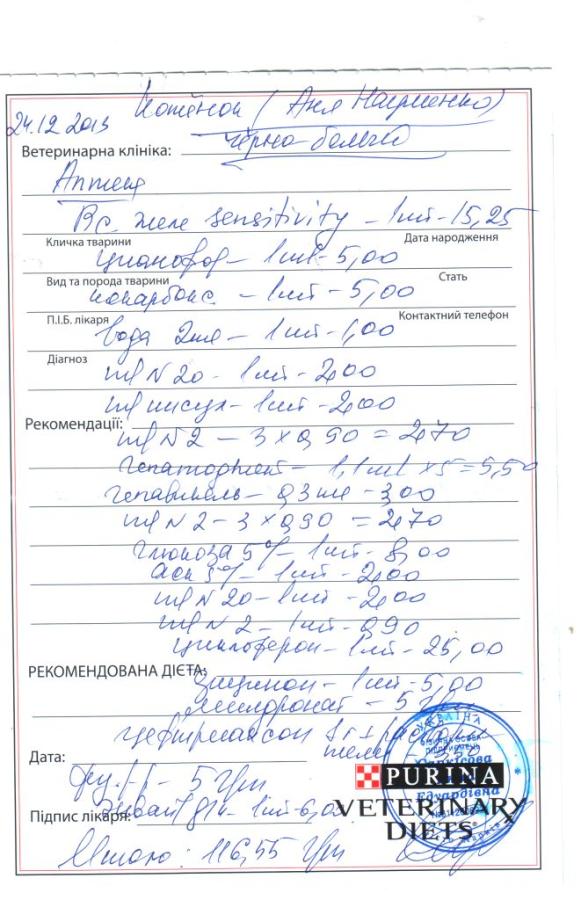 24.12.2013 Котёнок (Аня Науменко)
Ветеринарна клініка: чёрно-белый
Аптека
Вс. желе sensitivity – 1шт – 15,25
Кличка тварини Дата народження
– 1ml – 5,00
Вид та порода тварини Стать
кокарбокс. – 1шт – 5,00
П.І.Б. лікаря Контактний телефон
вода 2мл – 1шт – 1,00
Діагноз
шп N 20 – 1шт – 2,00
шп инсул – 1шт – 2,00
Рекомендації:
шп N 2 – 3 × 0,90 = 2,70
– 1,1ml × 5 = 5,50
– 0,3мл – 3,00
шп N 2 – 3 × 0,90 = 2,70
глюкоза 5% – 1шт – 8,00
Аск 5% – 1шт – 2,00
шп N 20 – 1шт – 2,00
шп N 2 – 1шт – 0,90
циклоферон – 1шт – 25,00
РЕКОМЕНДОВАНА ДІЄТА:
– 1шт – 5,00
милдронат – 5
цефтриаксон
Дата:
5 грн
УКРАЇНА
Едуардівна
PURINA
VETERINARY
DIETS
Підпис лікаря: – 1шт – 6,0
Итого: 116,55 грн